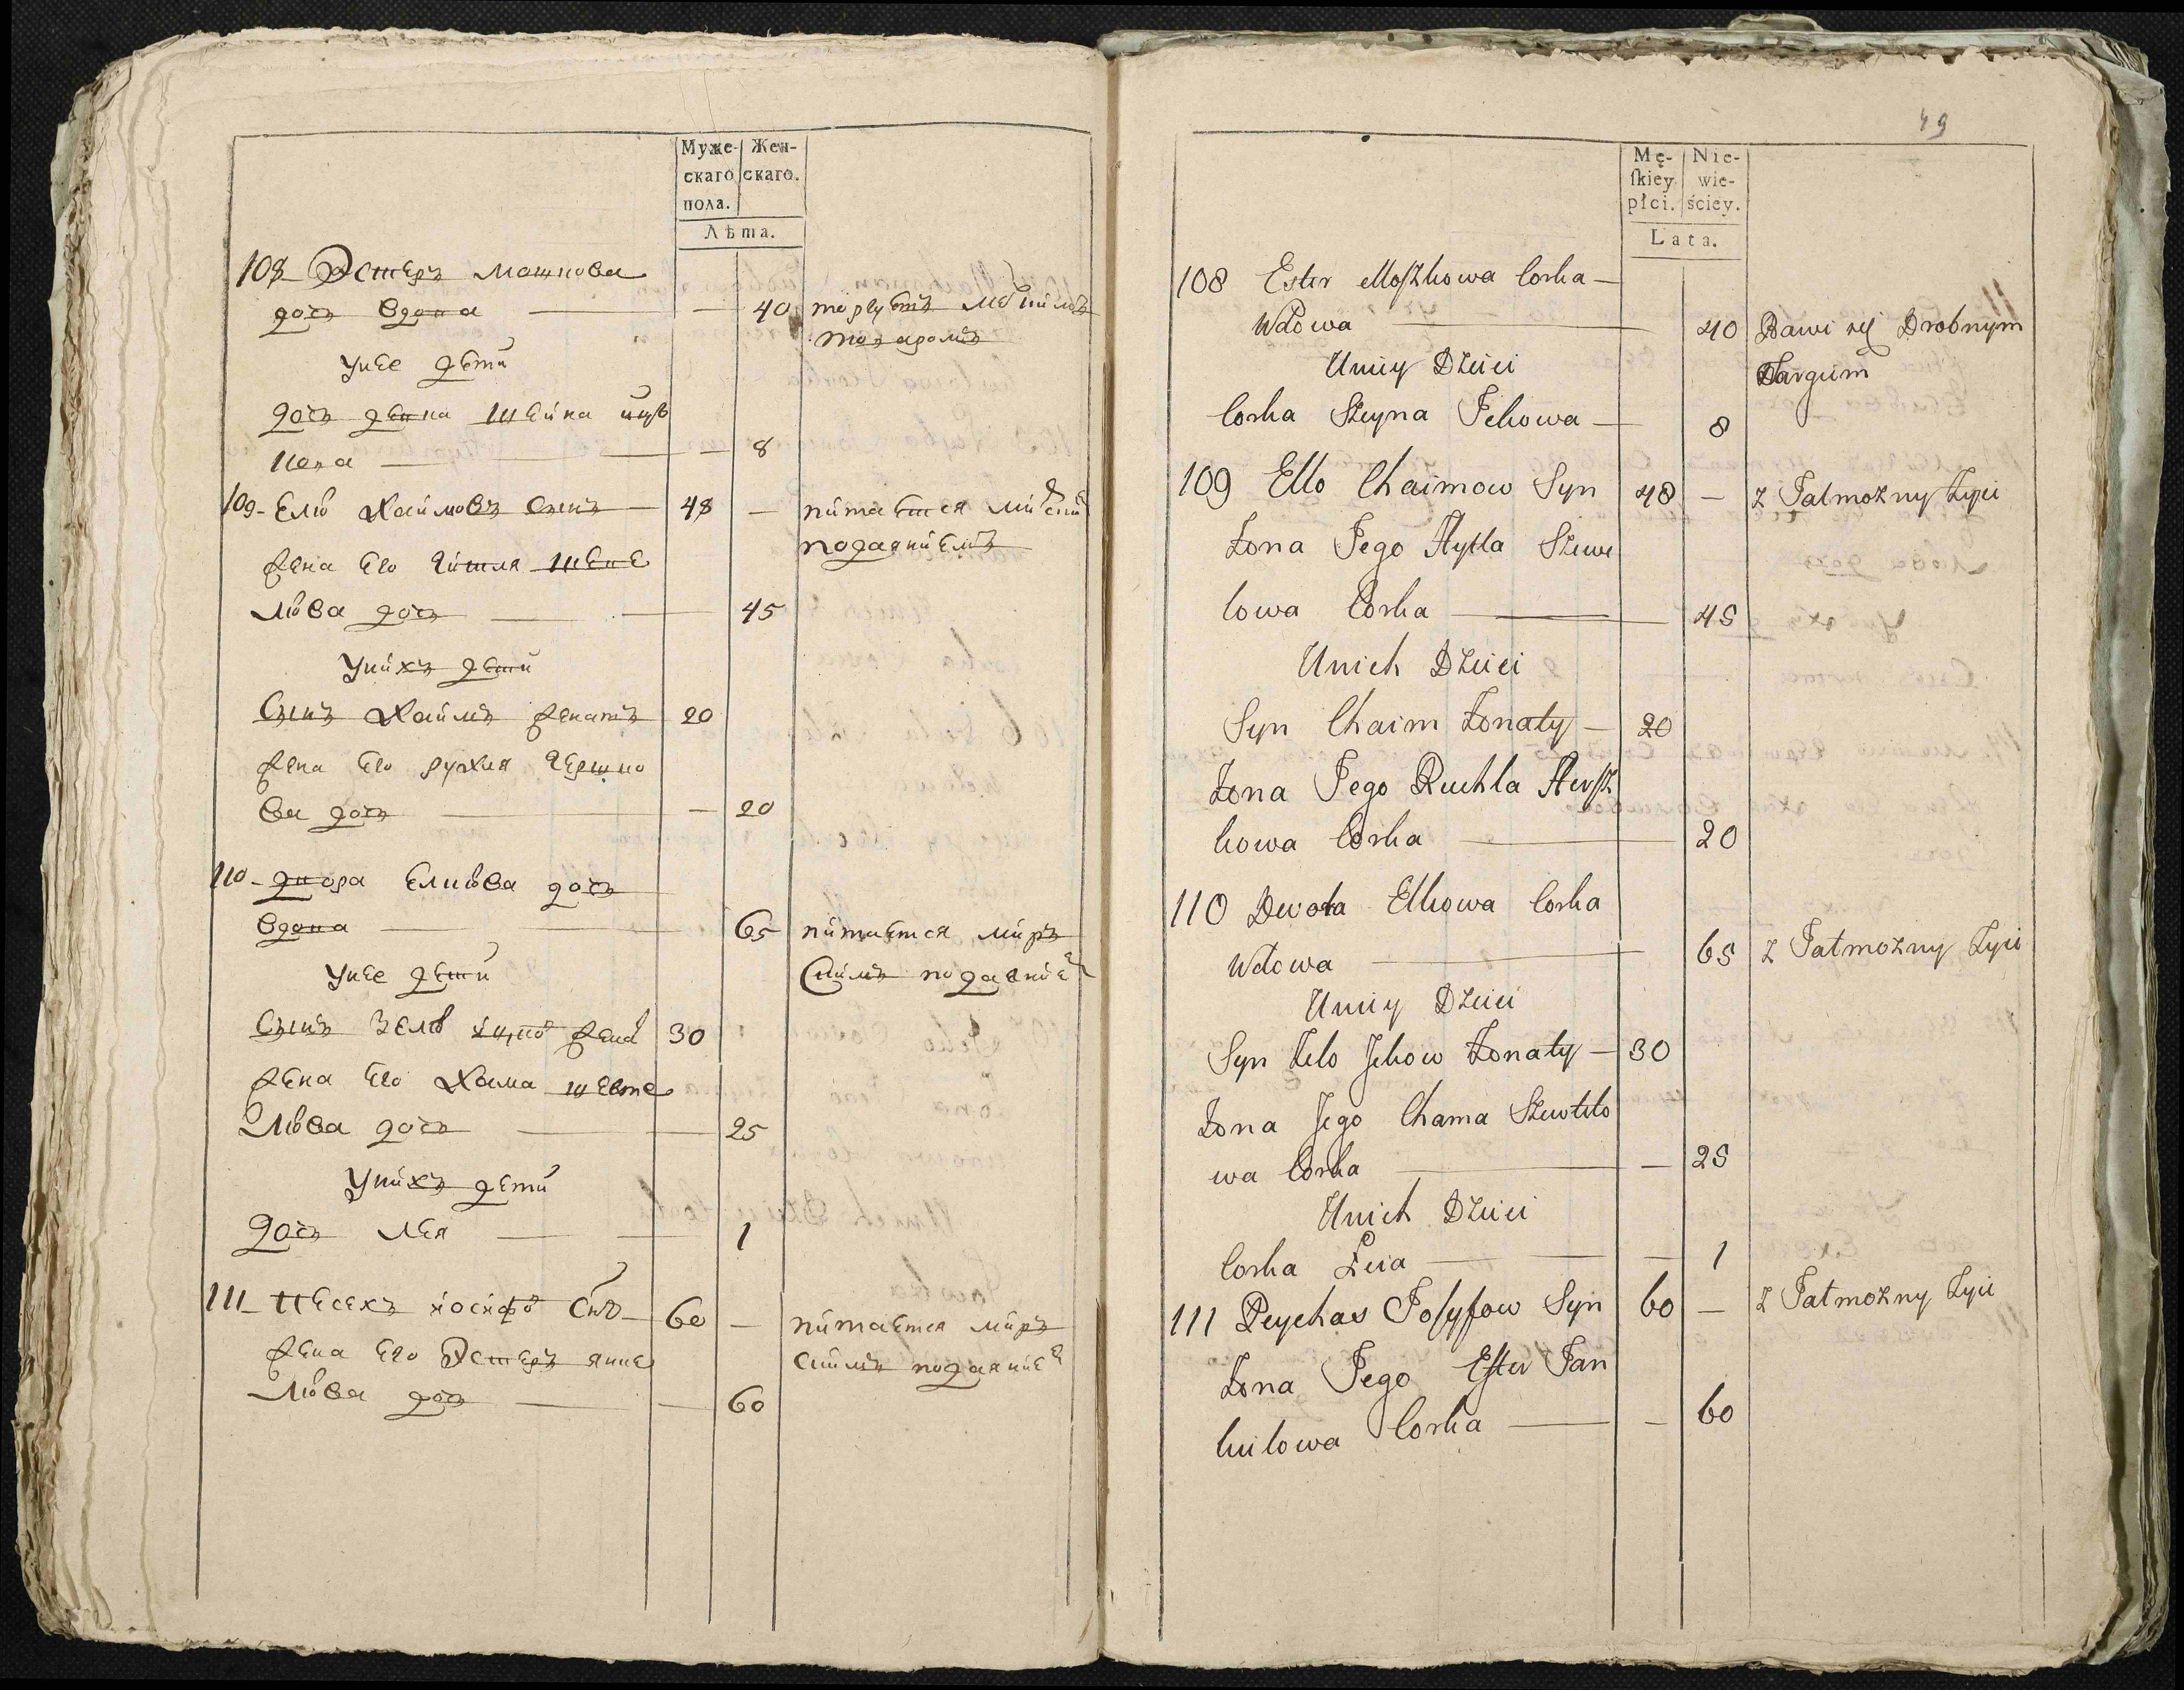 Муже- Жен-
скаго скаго.
пола.
Лѣта.
108 Эстеръ мошкова
дочь вдова — — 40 торгуетъ мѣлкимъ
товаромъ
У нее дети
дочь девка шейна ицъ
кова — — 8
109 Елю Хаимовъ сынъ — 48 — питается мирский
подаяниемъ
жена его гитля шеве
лѣва дочь — — 45
У нихъ дети
Сынъ Хаимъ женатъ 20
жена его рухля гершко
ва дочь — — 20
110 двора Елиова дочь
вдова — — 65 питается мирз
скимъ подаяние
У нее дети
Сынъ Зелю ицко жена 30
жена его Хама шевте
лѣва дочь — — 25
У нихъ дети
дочь лея — — 1
111 песехъ иосифо Снъ — 60 — питается мирз
скимъ подаяние
жена его Эстеръ янке
лѣва дочь — — 60
49
Mę- Nie-
ſkiey wie-
płci. ściey.
Lata.
108 Ester Moſzkowa Corka —
Wdowa — 40 Bawi się Drobnym
Targiem
Uniey Dzieci
Corka Szeyna Jckowa — 8
109 Elio Chaimow Syn 48 — z Jatmożny Żyie
Żona Jego Hytla Szewe
lowa Corka — — 45
Unich Dzieci
Syn Chaim Żonaty — 20
Żona Jego Ruchla Herſz
kowa Corka — 20
110 Dwora Elkowa Corka
Wdowa — 65 z Jatmożny Żyie
Uniey Dzieci
Syn Zelo Jckow Żonaty — 30
Żona Jego Chama Szewtelo
wa Corka — — 25
Unich Dzieci
Corka Leia — — — 1
111 Peychas Joſyfow Syn 60 — z Jatmożny Żyie
Żona Jego Eſter Jan
kielowa Corka — — 60